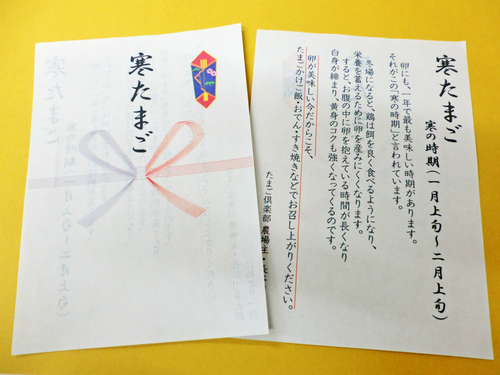 寒たまご
寒たまご
寒の時期(一月上旬〜二月上旬)
卵にも、一年で最も美味しい時期があります。
それがこの「寒の時期」と言われています。
冬場になると、鶏は餌を良く食べるようになり、
栄養を蓄えるために卵を産みにくくなります。
すると、お腹の中に卵を抱えている時間が長くなり
白身が締まり、黄身のコクも強くなってくるのです。
卵が美味しい今だからこそ、
たまごかけご飯・おでん・すき焼きなどでお召し上がりください。
たまご倶楽部 農場主・